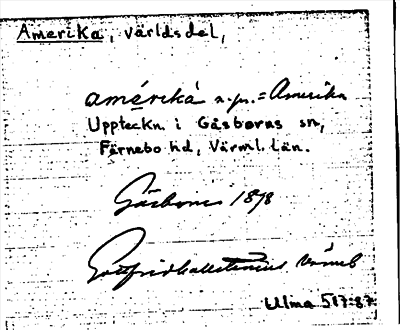 Amerika, världsdel,
amérikà n.pr. = Amerika
Uppteckn. i Gåsborns sn,
Färnebo hd, Värml. län.
Gåsborn 1878
Gottfrid Kallstenius Värml
Ulma 517:87